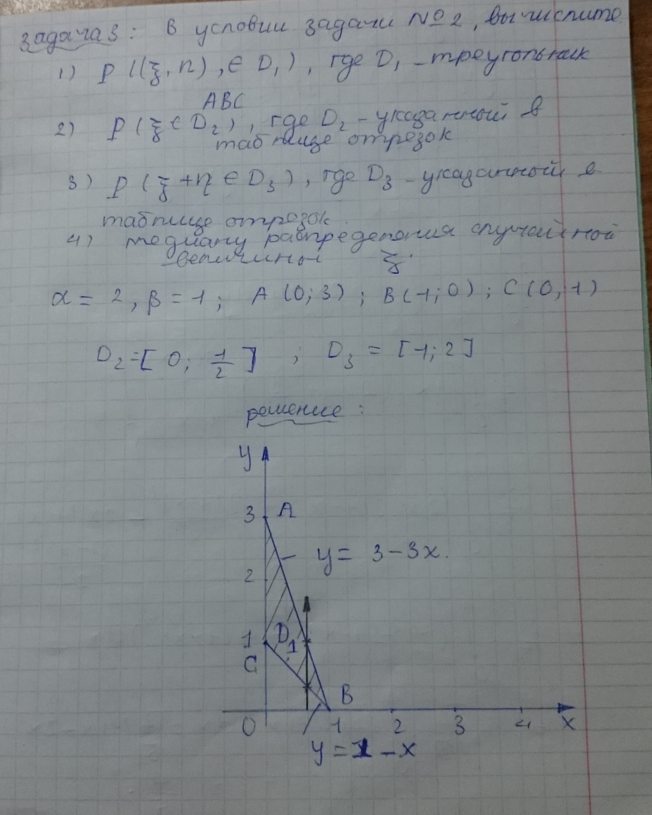 Задача 3: В условии задачи № 2, вычислите
1) P((ξ, η), ∈ D₁), где D₁ - треугольник
ABC
2) P(ξ ∈ D₂), где D₂ - указанный в
таблице отрезок
3) P(ξ + η ∈ D₃), где D₃ - указанный в
таблице отрезок.
4) медиану распределения случайной
величины ξ.
α = 2, β = 1; A(0; 3); B(1; 0); C(0, 1)
D₂ = [0; 1/2]; D₃ = [1; 2]
решение:
y
3 A
y = 3 - 3x.
2
1 D₁
C
B
0 1 2 3 4 x
y = 1 - x